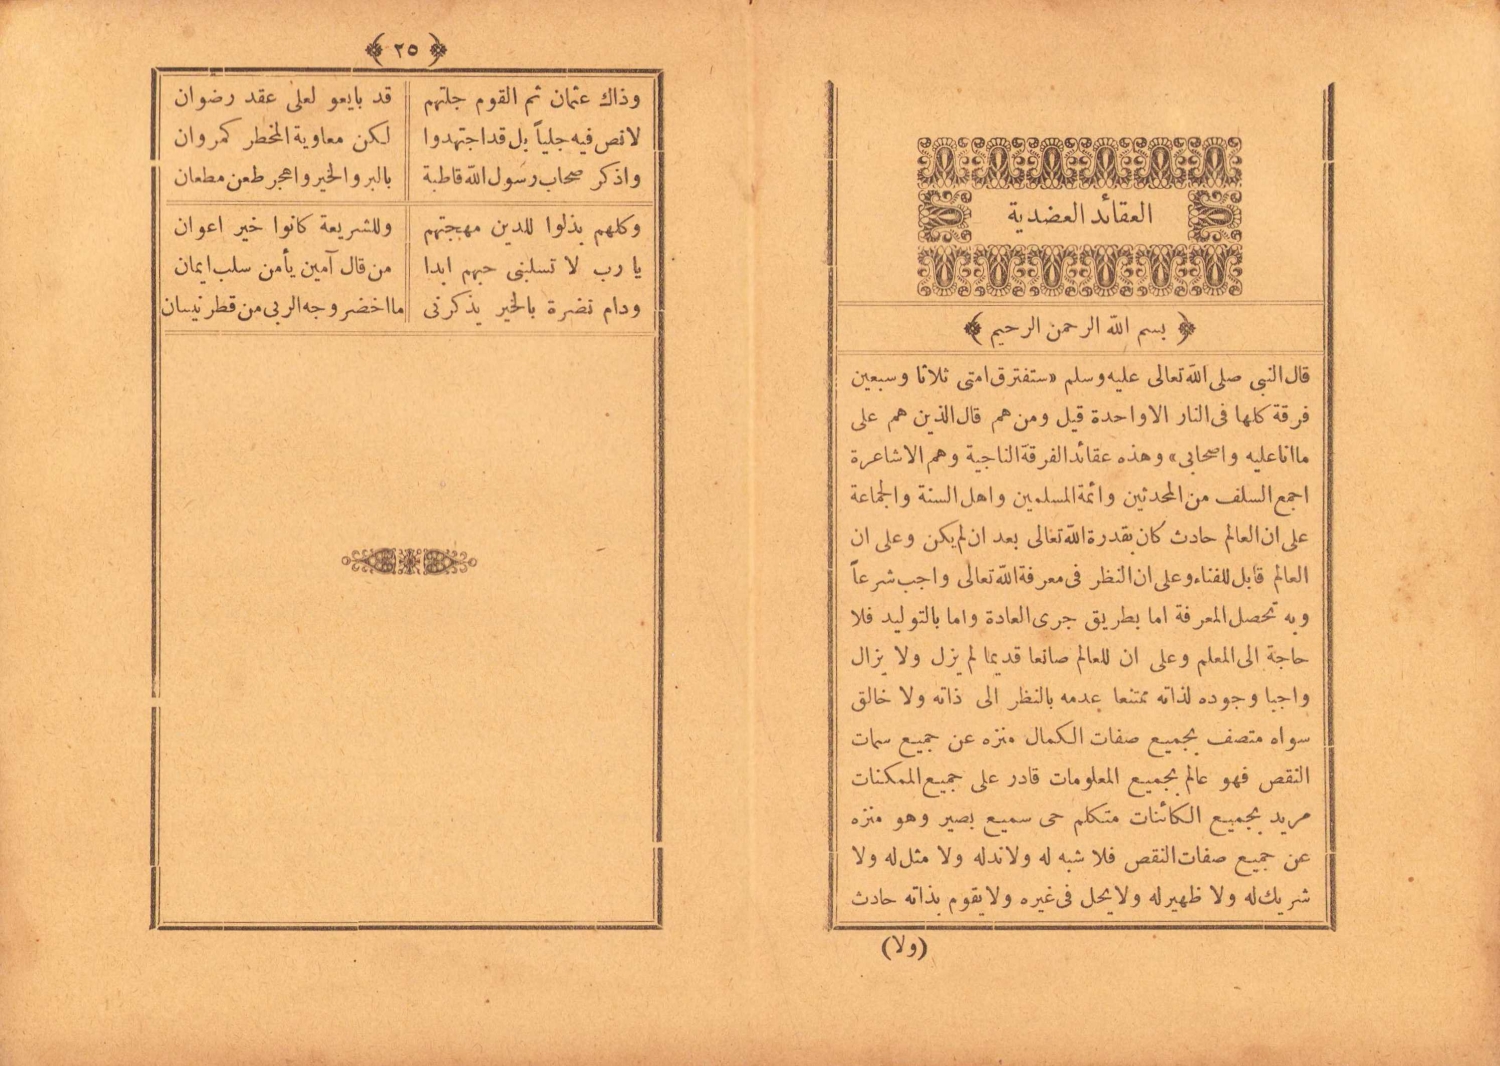 العقائد العضدية
﴿ بسم الله الرحمن الرحيم ﴾
قال النبى صلى الله تعالى عليه وسلم «ستفترق امتى ثلاثا وسبعين
فرقة كلها فى النار الا واحدة قيل ومن هم قال الذين هم على
ما انا عليه واصحابى» وهذه عقائد الفرقة الناجية وهم الاشاعرة
اجمع السلف من المحدثين وائمة المسلمين واهل السنة والجماعة
على ان العالم حادث كان بقدرة الله تعالى بعد ان لم يكن وعلى ان
العالم قابل للفناء وعلى ان النظر فى معرفة الله تعالى واجب شرعاً
وبه تحصل المعرفة اما بطريق جرى العادة واما بالتوليد فلا
حاجة الى المعلم وعلى ان للعالم صانعا قديما لم يزل ولا يزال
واجبا وجوده لذاته ممتنعا عدمه بالنظر الى ذاته ولا خالق
سواه متصف بجميع صفات الكمال منزه عن جميع سمات
النقص فهو عالم بجميع المعلومات قادر على جميع الممكنات
مريد بجميع الكائنات متكلم حى سميع بصير وهو منزه
عن جميع صفات النقص فلا شبه له ولا ند له ولا مثل له ولا
شريك له ولا ظهير له ولا يحل فى غيره ولا يقوم بذاته حادث
(ولا)
﴿ ٢٥ ﴾
وذاك عثمان ثم القوم جلتهم قد بايعو لعلى عقد رضوان
لا نص فيه جلياً بل قد اجتهدوا لكن معاوية المخطر كمروان
واذكر صحاب رسول الله قاطبة بالبر والخير واهجر طعن مطعان
وكلهم بذلوا للدين مهجتهم وللشريعة كانوا خير اعوان
يا رب لا تسلبنى حبهم ابدا من قال آمين يأمن سلب ايمان
ودام نضرة بالخير يذكرنى ما اخضر وجه الربى من قطر نيسان